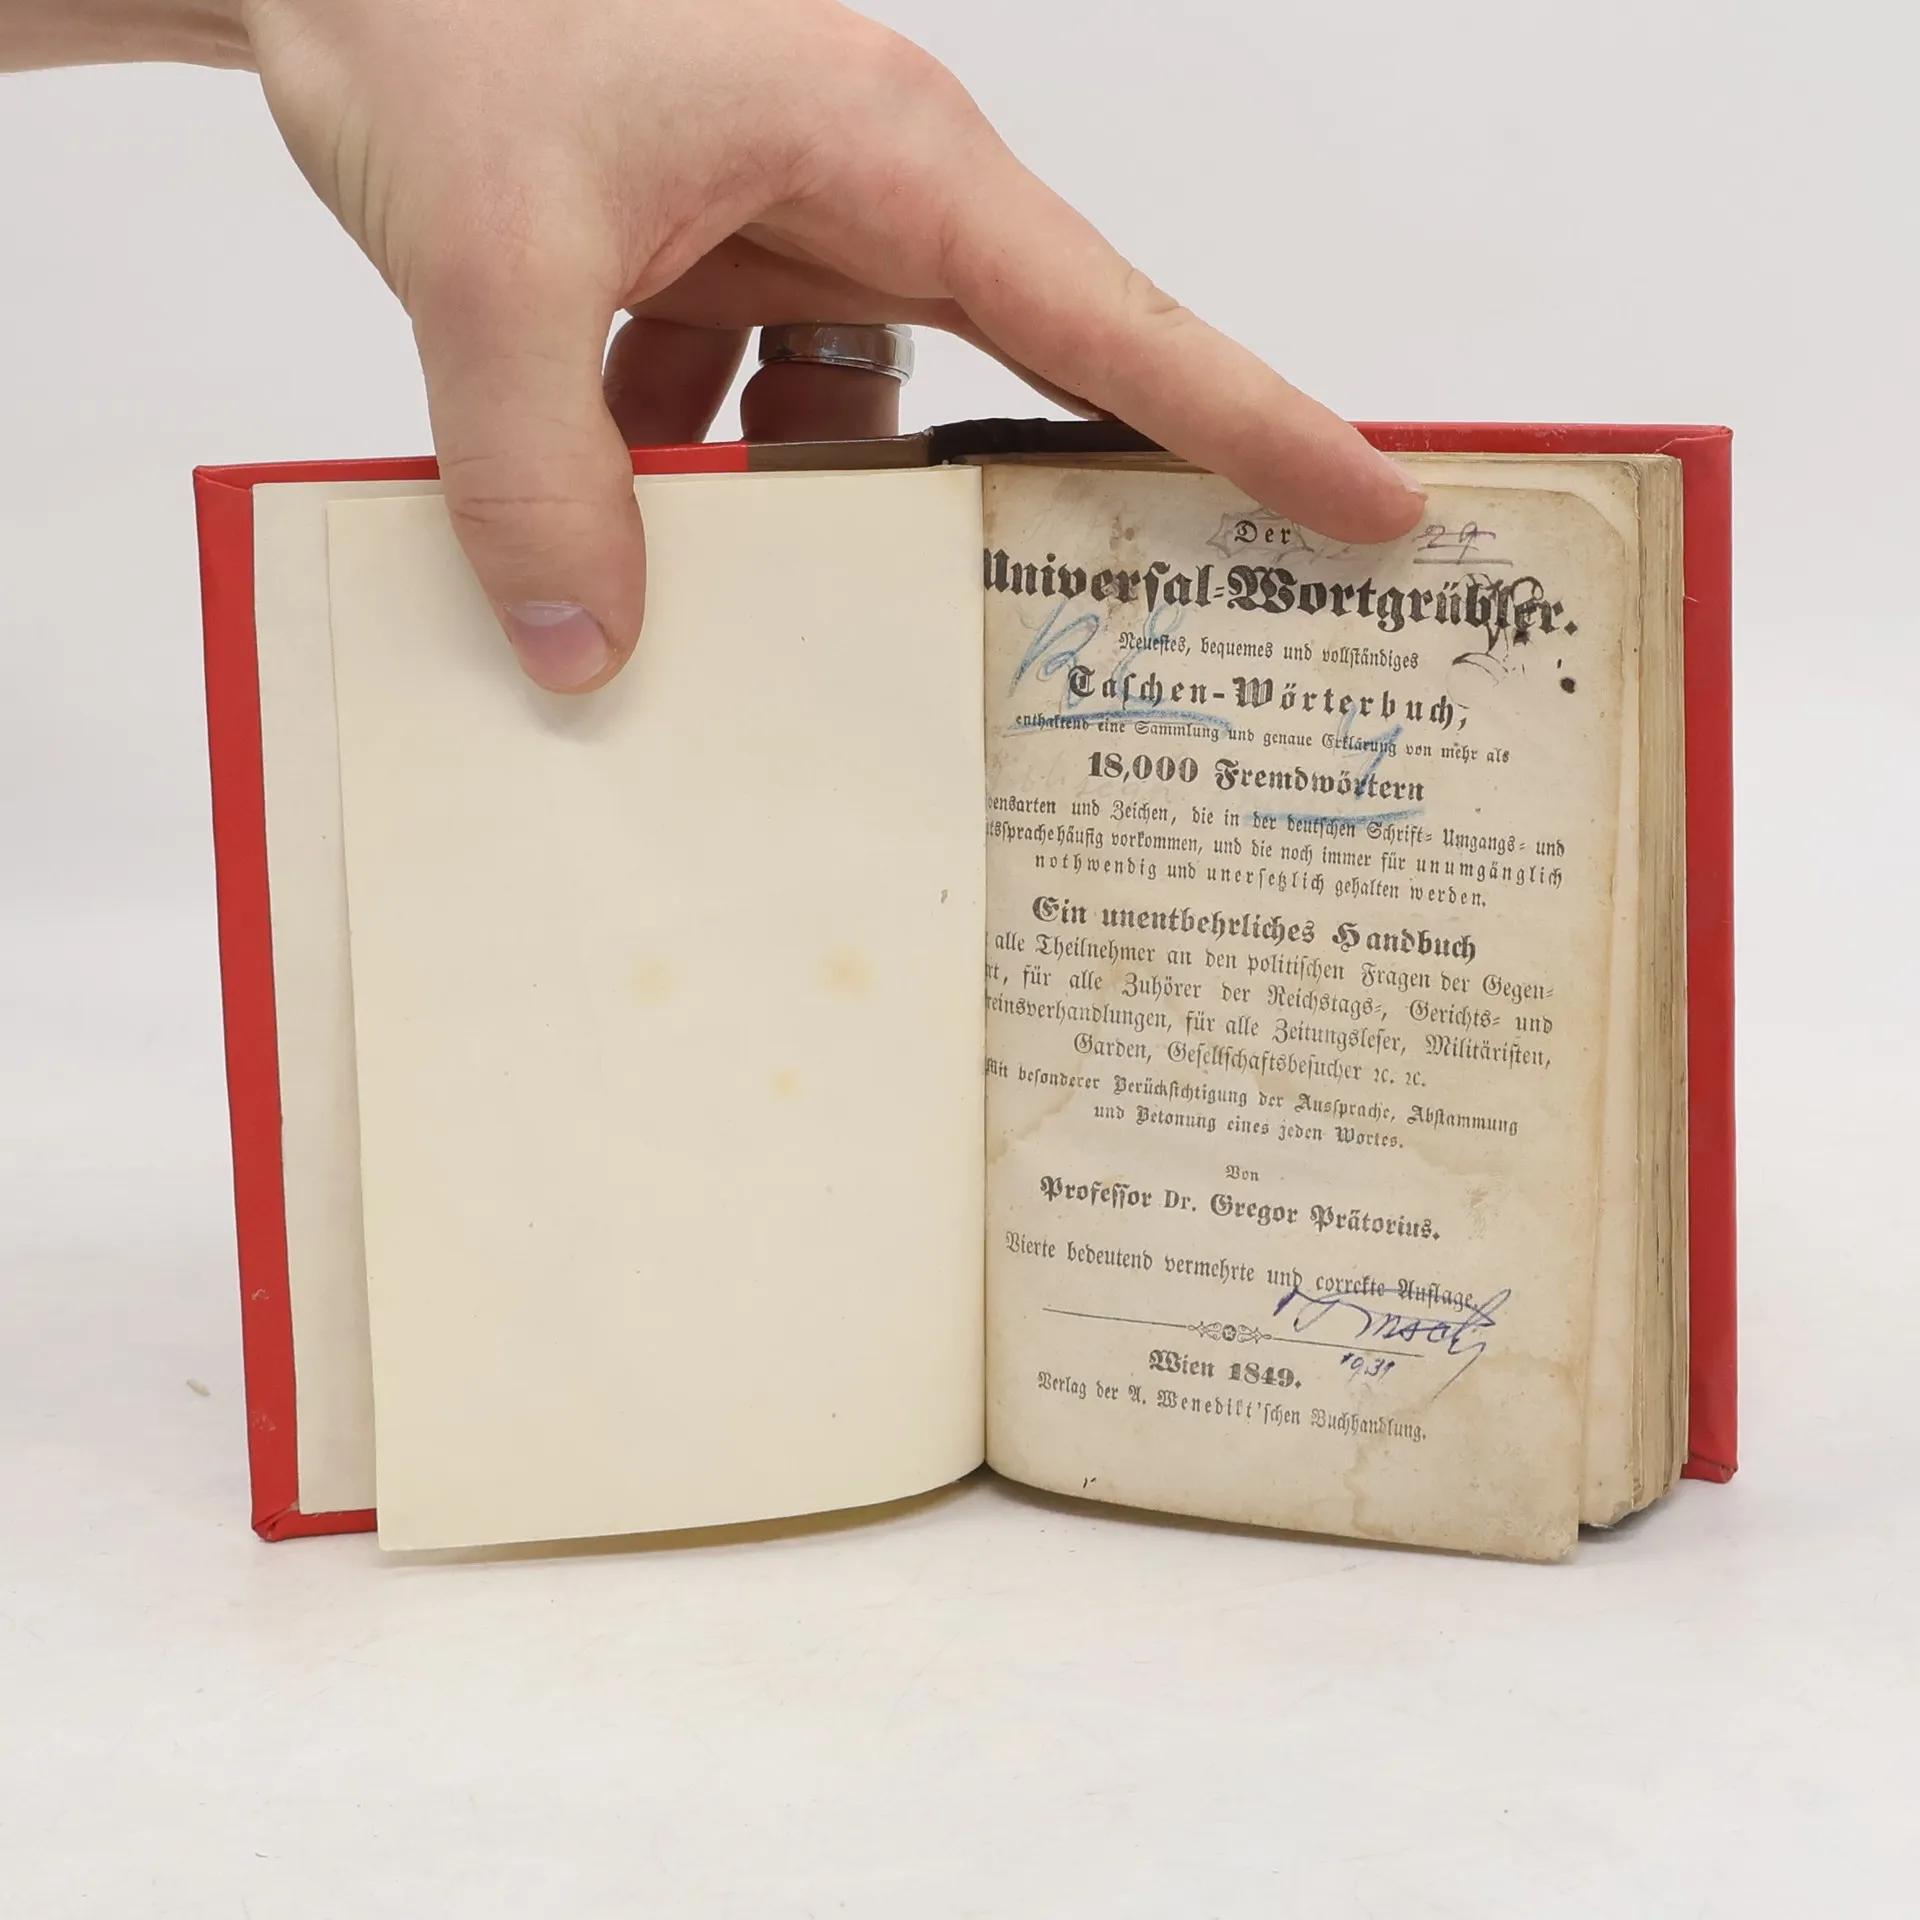 29
Der
Universal-Wortgrübler.
Neuestes, bequemes und vollständiges
Taschen-Wörterbuch,
enthaltend eine Sammlung und genaue Erklärung von mehr als
18,000 Fremdwörtern
densarten und Zeichen, die in der deutschen Schrift- Umgangs- und
tssprache häufig vorkommen, und die noch immer für unumgänglich
nothwendig und unersetzlich gehalten werden.
Ein unentbehrliches Handbuch
alle Theilnehmer an den politischen Fragen der Gegen-
rt, für alle Zuhörer der Reichstags-, Gerichts- und
reinsverhandlungen, für alle Zeitungsleser, Militäristen,
Garden, Gesellschaftsbesucher ꝛc. ꝛc.
Mit besonderer Berücksichtigung der Aussprache, Abstammung
und Betonung eines jeden Wortes.
Von
Professor Dr. Gregor Prätorius.
Vierte bedeutend vermehrte und correkte Auflage.
Wien 1849.
1931
Verlag der A. Wenedikt'schen Buchhandlung.